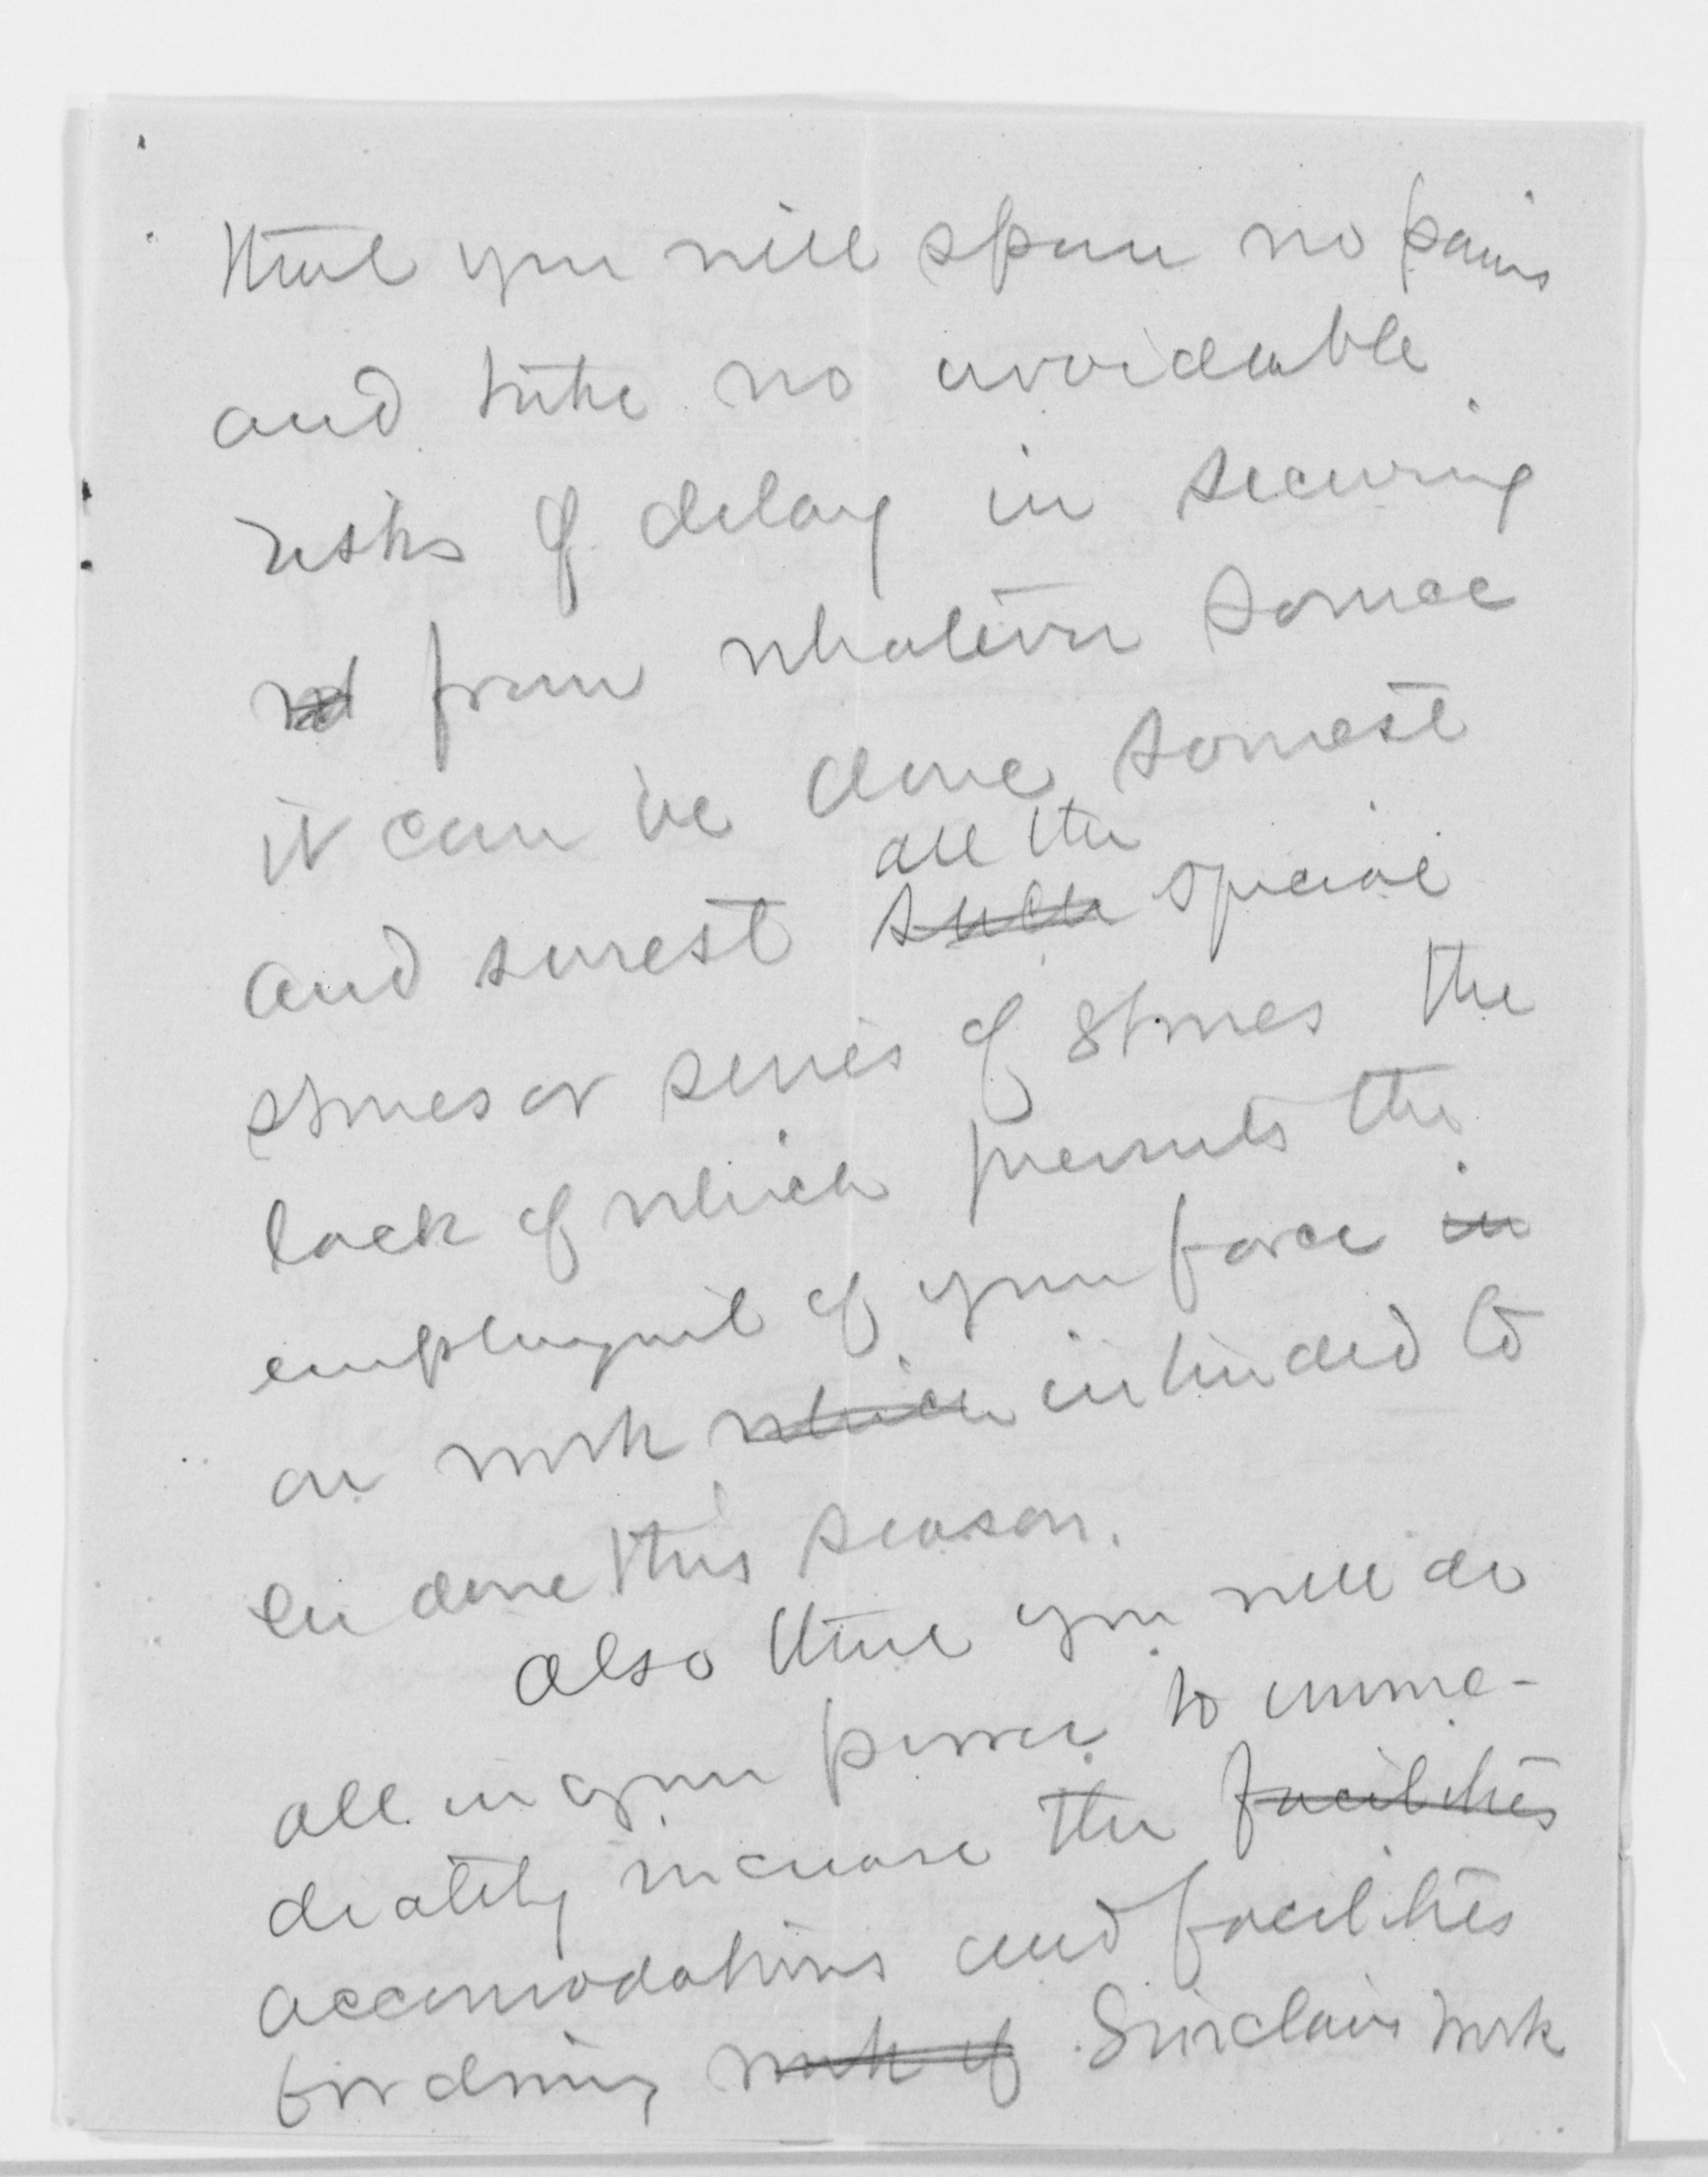 that you will spare no pains
and take no avoidable
risks of delay in securing
from whatever source
it can be done soonest
all the
and surest such special
stones or series of stones the
lack of which prevents the
employment of your force in
on work which intended to
be done this season.
Also that you will do
all in your power to imme-
diately increase the facilities
accomodations and facilities
for doing work of Sinclairs work